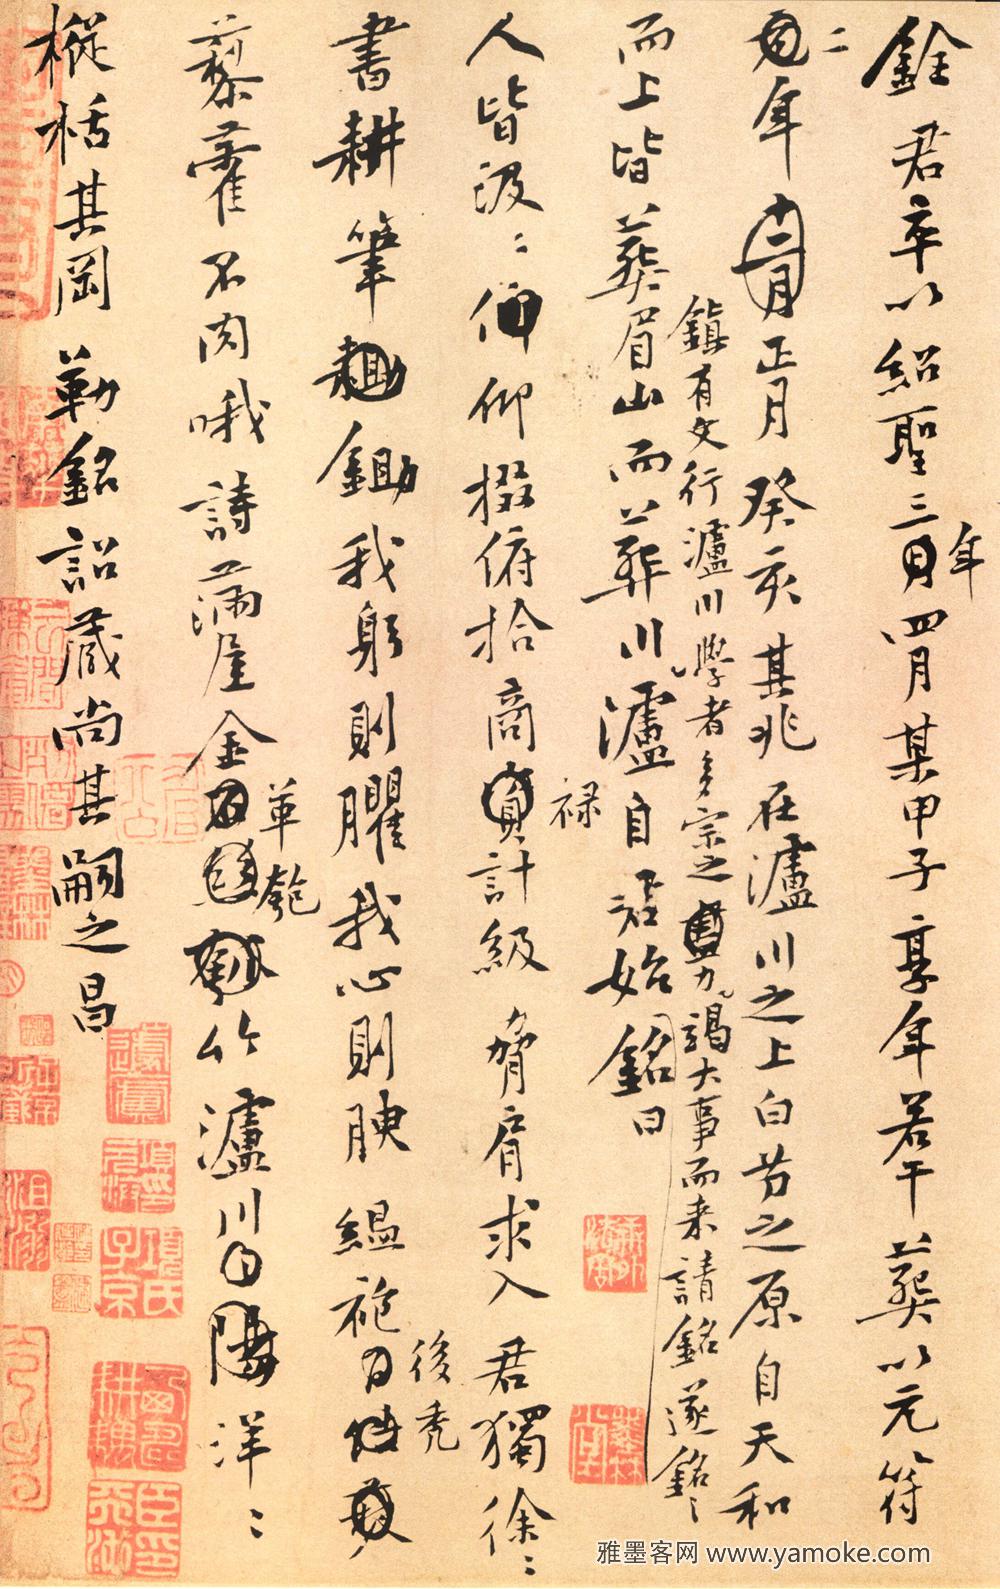 銓君卒以紹聖三年四月某甲子享年若干葬以元符
二年正月癸亥其兆在瀘川之上白芀之原自天和
而上皆葬眉山而葬瀘川自始銘曰
鎮有文行瀘川學者多宗之力謁大事而来請銘遂銘〻
人皆汲〻仰掇俯拾商祿計級脅肩求入君獨徐〻
書耕筆鋤我躬則臞我心則腴縕袍後禿
藜藿不肉哦詩滿屋金革匏竹瀘川洋〻
樅栝其岡勒銘詔藏尚其嗣之昌
雅墨客网 www.yamoke.com